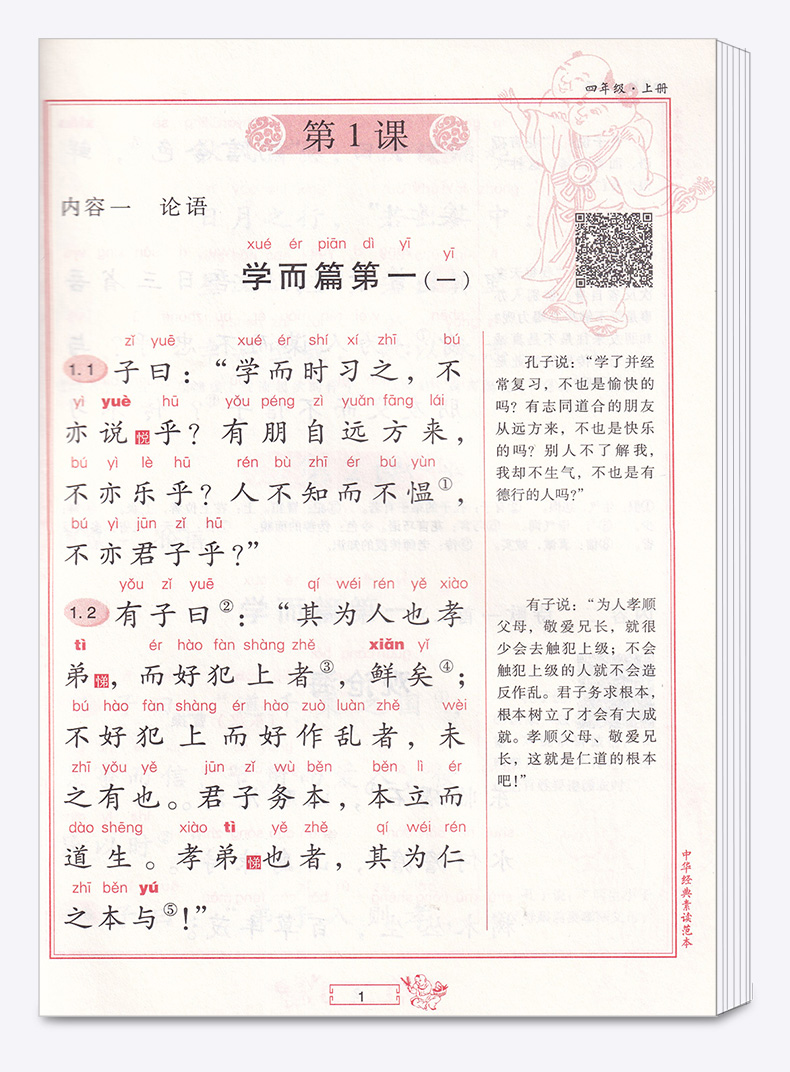 四年级·上册
第1课
内容一 论语
xué ér piān dì yī yī
学而篇第一(一)
zǐ yuē xué ér shí xí zhī bú
1.1 子曰：“学而时习之，不
yì yuè hū yǒu péng zì yuǎn fāng lái
亦说悦乎？有朋自远方来，
bú yì lè hū rén bù zhī ér bú yùn
不亦乐乎？人不知而不愠①，
bú yì jūn zǐ hū
不亦君子乎？”
孔子说：“学了并经
常复习，不也是愉快的
吗？有志同道合的朋友
从远方来，不也是快乐
的吗？别人不了解我，
我却不生气，不也是有
德行的人吗？”
yǒu zǐ yuē qí wéi rén yě xiào
1.2 有子曰②：“其为人也孝
tì ér hào fàn shàng zhě xiǎn yǐ
弟悌，而好犯上者③，鲜矣④；
bú hào fàn shàng ér hào zuò luàn zhě wèi
不好犯上而好作乱者，未
zhī yǒu yě jūn zǐ wù běn běn lì ér
之有也。君子务本，本立而
dào shēng xiào tì yě zhě qí wéi rén
道生。孝弟悌也者，其为仁
zhī běn yú
之本与⑤！”
有子说：“为人孝顺
父母，敬爱兄长，就很
少会去触犯上级；不会
触犯上级的人就不会造
反作乱。君子务求根本，
根本树立了才会有大成
就。孝顺父母、敬爱兄
长，这就是仁道的根本
吧！”
中华经典素读范本
1